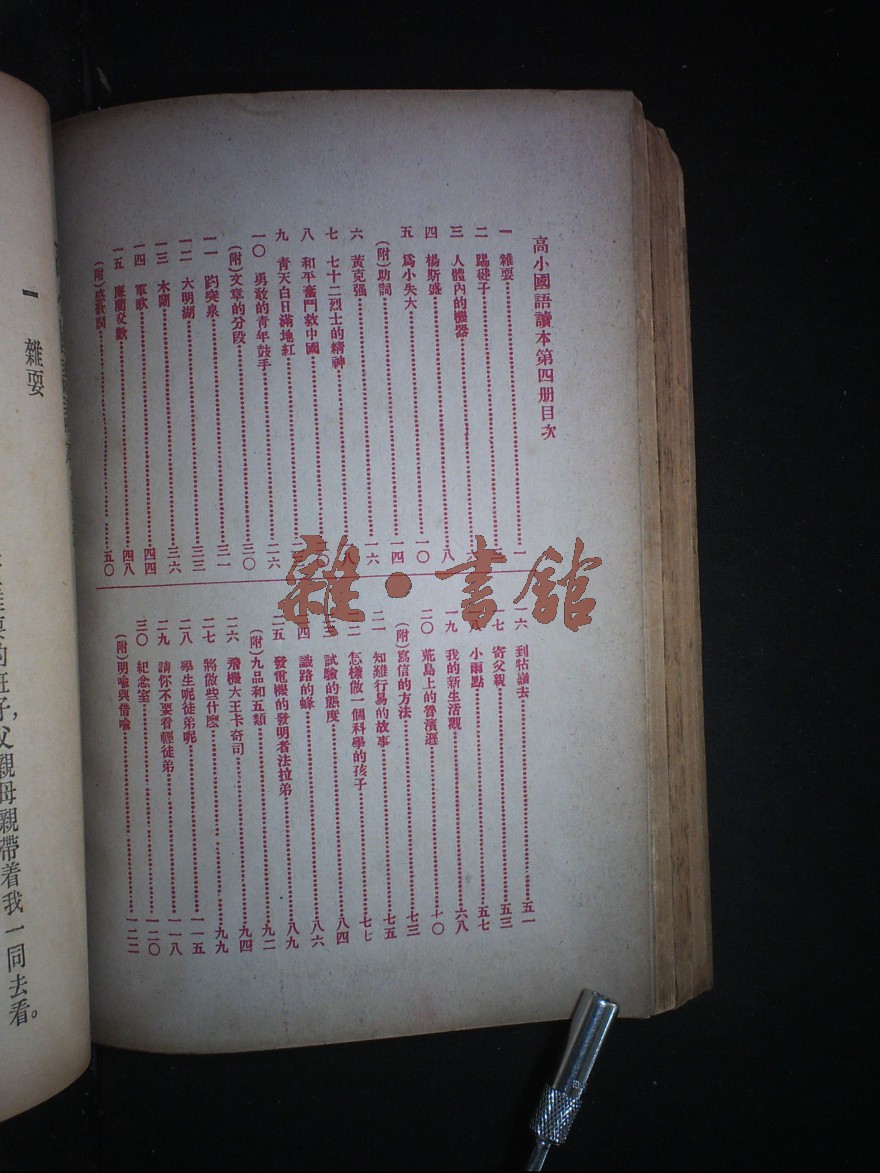 高小國語讀本第四册目次
一 雜耍……一
二 踢毽子
三 人體內的機器……六
四 楊斯盛……八
五 爲小失大……一〇
(附)助詞……一四
六 黃克强……一六
七 七十二烈士的精神
八 和平奮鬥救中國
九 青天白日滿地紅
一〇 勇敢的青年鼓手……二六
(附)文章的分段……三〇
一一 趵突泉……三一
一二 大明湖……三三
一三 木蘭……三六
一四 軍歌……四四
一五 廉藺交歡……四八
(附)感歎詞……五〇
一六 到牯嶺去……五一
一七 寄父親……五三
一八 小雨點……五七
一九 我的新生活觀……六八
二〇 荒島上的魯濱遜……七〇
(附)寫信的方法……七三
二一 知難行易的故事……七五
二二 怎樣做一個科學的孩子……七七
二三 試驗的態度……八四
二四 識路的蜂……八六
二五 發電機的發明者法拉弟……八九
(附)九品和五類……九二
二六 飛機大王卡奇司……九四
二七 將做些什麽……九九
二八 學生呢徒弟呢……一一五
二九 請你不要看輕徒弟……一一八
三〇 紀念室……一二〇
(附)明喻與借喻……一二二
一 雜耍
雜耍的班子,父親母親帶着我一同去看。
雜·書館